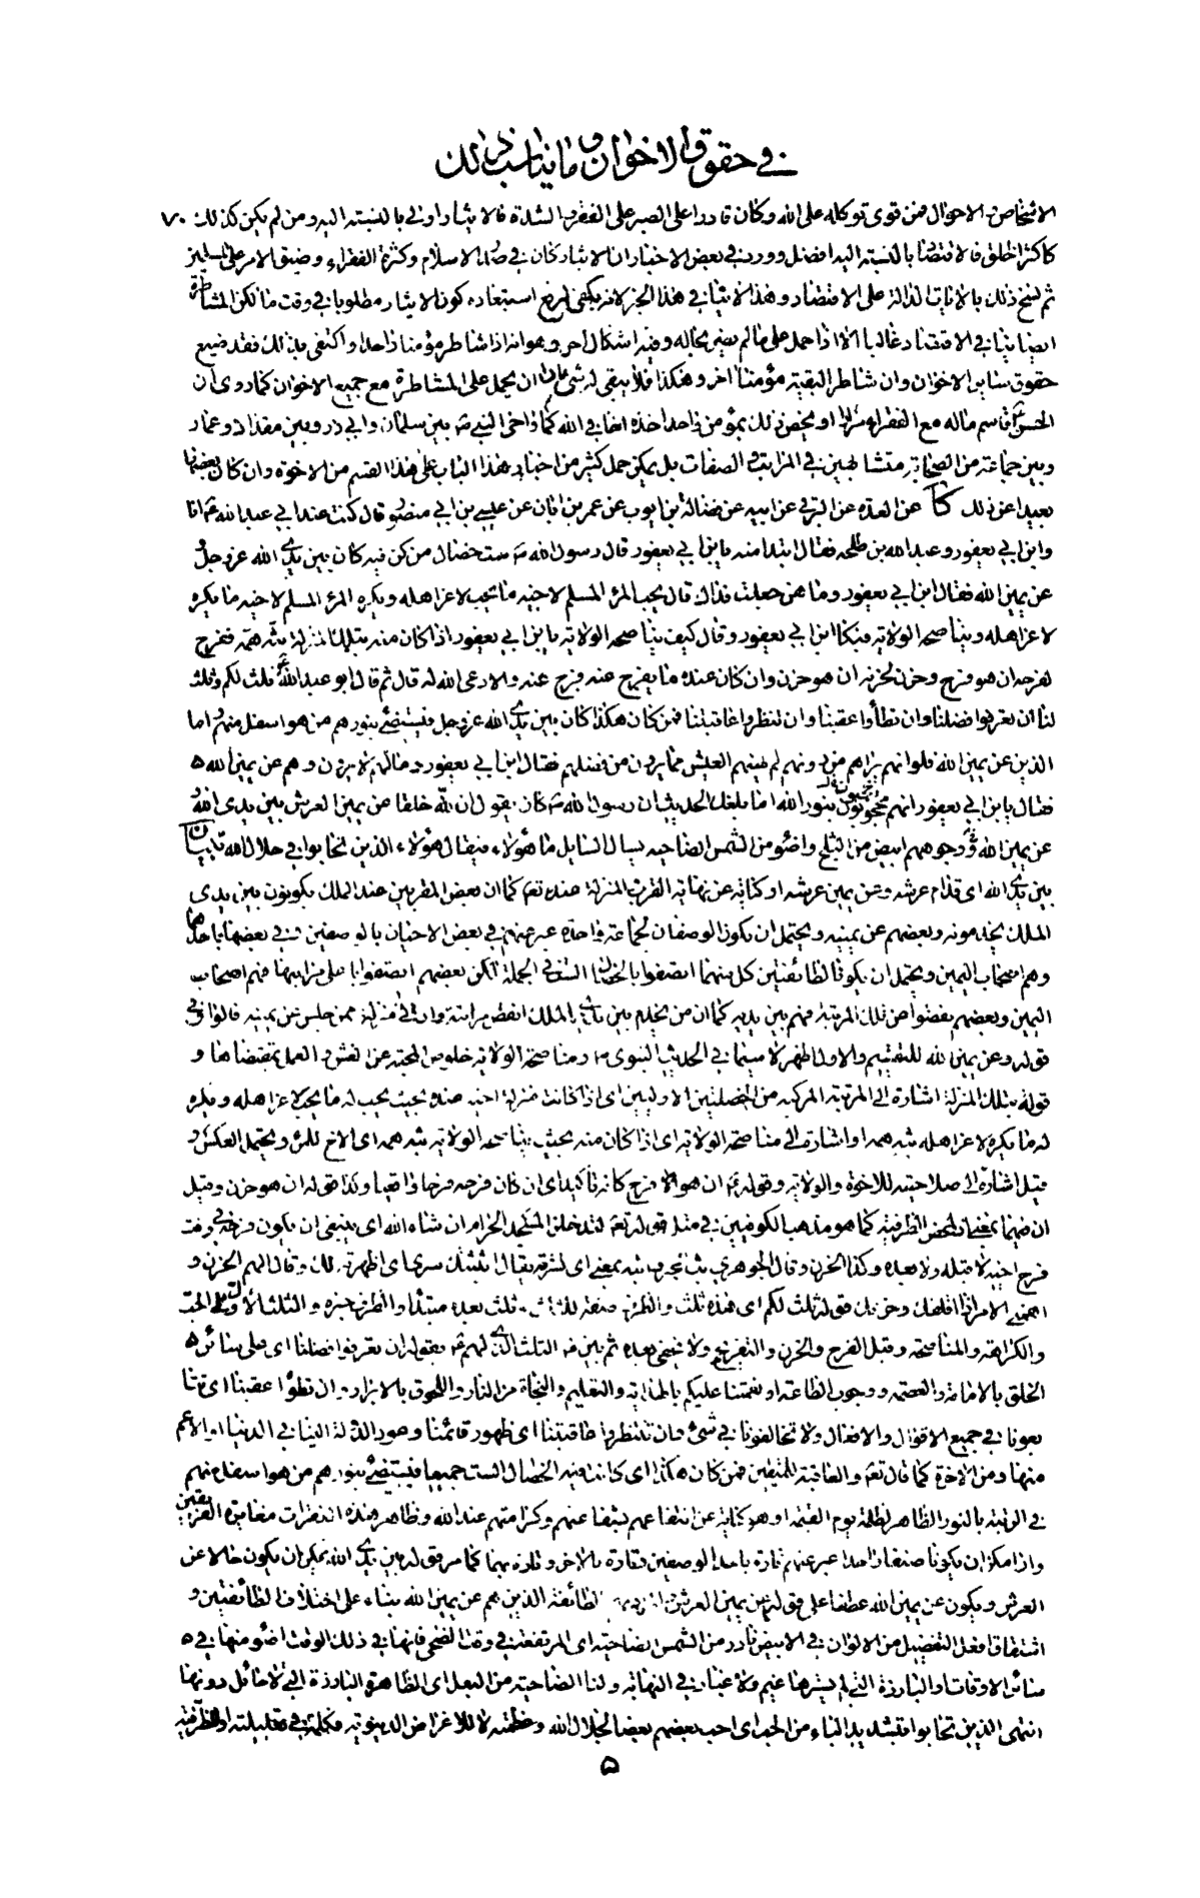 في حقوق الاخوان وما يناسب ذلك
الاشخاص والاحوال فمن قوى توكله على الله وكان قادرا على الصبر على الفقر والشدة فالايثار اولى بالنسبة اليه ومن لم يكن كذلك ٧٠
كاكثر الخلق فالاقتصاد بالنسبة اليه افضل وورد في بعض الاخبار ان الايثار كان في صدر الاسلام وكثرة الفقراء وضيق الامر على المسلمين
ثم نسخ ذلك بالايات الدالة على الاقتصاد وهذا لا ينافي هذا الخبر لانه يكفى لرفع استبعاده كون الايثار مطلوبا في وقت ما لكن المشاطرة
ايضا ينافي الاقتصاد غالبا الا اذا حمل على ما لم يضر بحاله وفيه اشكال اخر وهو انه اذا شاطر مؤمنا واحدا واكتفى بذلك فقد ضيع
حقوق سائر الاخوان وان شاطر البقية مؤمنا اخر وهكذا فلا يبقى له شيء الا ان يحمل على المشاطرة مع جميع الاخوان كما روى ان
الحسن قاسم ماله مع الفقراء مرارا او يخص ذلك بمؤمن واحد اخذه اخا في الله كما واخى النبي ص بين سلمان وابي ذر وبين مقداد وعمار
وبين جماعة من الصحابة متشابهين في المراتب والصفات بل يمكن حمل كثير من اخبار هذا الباب على هذا القسم من الاخوة وان كان بعضها
بعيدا عن ذلك كا عن العدة عن البرقي عن ابيه عن فضالة بن ايوب عن عمر بن ابان عن عيسى بن ابي منصور قال كنت عند ابي عبد الله ع انا
وابن ابي يعفور وعبد الله بن طلحة فقال ابتداء منه يا بن ابي يعفور قال رسول الله ص ست خصال من كن فيه كان بين يدي الله عز وجل
عن يمين الله فقال ابن ابي يعفور وما هن جعلت فداك قال يحب المرء المسلم لاخيه ما يحب لاعز اهله ويكره المرء المسلم لاخيه ما يكره
لاعز اهله ويناصحه الولاية فبكا ابن ابي يعفور وقال كيف يناصحه الولاية يا بن ابي يعفور اذا كان منه بتلك المنزلة بثه همه ففرح
لفرحه ان هو فرح وحزن لحزنه ان هو حزن وان كان عنده ما يفرج عنه فرج عنه والا دعى الله له قال ثم قال ابو عبد الله ع ثلث لكم وثلث
لنا ان تعرفوا فضلنا وان تطأوا عقبنا وان تنظروا عاقبتنا فمن كان هكذا كان بين يدي الله عز وجل فيستضيء بنورهم من هو اسفل منهم واما
الذين عن يمين الله فلو انهم يراهم من دونهم لم يهنهم العيش مما يرون من فضلهم فقال ابن ابي يعفور وما لهم لا يرون وهم عن يمين الله
فقال يا بن ابي يعفور انهم محجوبون بنور الله اما بلغك الحديث ان رسول الله ص كان يقول ان لله خلقا عن يمين العرش بين يدى الله
عن يمين الله وجوههم ابيض من الثلج واضوء من الشمس الضاحية يسال السايل ما هؤلاء فيقال هؤلاء الذين تحابوا في جلال الله بيان
بين يدي الله اى قدام عرشه وعن يمين عرشه او كناية عن نهاية القرب والمنزلة عنده تعم كما ان بعض المقربين عند الملك يكونون بين يدى
الملك يخدمونه وبعضهم عن يمينه ويحتمل ان يكون الوصفان لجماعة واحدة عبر عنهم في بعض الاحيان بالوصفين وفي بعضها باحدهما
وهم اصحاب اليمين ويحتمل ان يكونا لطائفتين كل منهما اتصفوا بالخصال الست في الجملة لكن بعضهم اتصفوا باعلى مراتبها فهم اصحاب
اليمين وبعضهم نقصوا عن تلك المرتبة فهم بين يديه كما ان من يخدم بين يدي الملك انقص مرتبة وادنى منزلة ممن جلس عن يمينه فالواو في
قوله وعن يمين الله للتقسيم والاول اظهر لا سيما في الحديث النبوى ص ومناصحة الولاية خلوص المحبة عن الغش والعمل بمقتضاها و
قوله بتلك المنزلة اشارة الى المرتبة المركبة من الخصلتين الاوليين اى اذا كانت منزلة اخيه عنده بحيث يحب له ما يحب لاعز اهله ويكره
له ما يكره لاعز اهله بثه همه او اشارة الى مناصحة الولاية اى اذا كان منه بحيث يناصحه الولاية بثه همه اى الاخ للمرء ويحتمل العكس و
قيل اشارة الى صلاحيته للاخوة والولاية وقوله ع ان هو فرح كانه تاكيد اى ان كان فرحه فرحا واقعيا وكذا قوله ان هو حزن وقيل
ان فيهما بمعنى اذ لمحض الظرفية كما هو مذهب الكوفيين في مثل قوله تعم لتدخلن المسجد الحرام ان شاء الله اى ينبغي ان يكون فرحه في وقت
فرح اخيه لا قبله ولا بعده وكذا الحزن وقال الجوهري بث الخبر وابثه بمعنى اى نشره يقال ابثثتك سرى اى اظهرته لك وقال الهم الحزن و
اهمني الامر اذا اقلقك وحزنك فقوله ثلث لكم اى هذه ثلث والظرف صفة للثلث وثلث بعده مبتدأ والظرف خبره والثلث الاول الحب
والكراهة والمناصحة وقيل الفرح والحزن والتفريج ولا يخفى بعده ثم بين ع الثلث الذي لهم ع بقوله ان تعرفوا فضلنا اى على سائر
الخلق بالامامة والعصمة ووجوب الطاعة او نعمتنا عليكم بالهداية والتعليم والنجاة من النار واللحوق بالابرار وان تطؤا عقبنا اى تتا
بعونا في جميع الاقوال والافعال ولا تخالفونا في شيء وان تنتظروا عاقبتنا اى ظهور قائمنا وعود الدولة الينا في الدنيا او الاعم
منها ومن الاخرة كما قال تعم والعاقبة للمتقين فمن كان هكذا اى كانت فيه الخصال الست جميعا فيستضيء بنورهم من هو اسفل منهم
في الرتبة بالنور الظاهر لظلمة يوم القيمة او هو كناية عن انتفاعهم بشفاعتهم وكرامتهم عند الله وظاهر هذه الفقرات مغايرة الفريقين
واذ امكن ان يكونا صنفا واحدا عبر عنهم تارة باحد الوصفين وتارة بالاخر وتارة بهما كما مر فقوله بين يدي الله يمكن ان يكون حالا عن
العرش ويكون عن يمين الله عطفا على قوله عن يمين العرش الطائفة الذين هم عن يمين الله بناء على اختلاف الطائفتين و
اشتقاق افعل التفضيل من الالوان في الابيض نادر من الشمس الضاحية اى المرتفعة في وقت الضحى فانها في ذلك الوقت اضوء منها في
سائر الاوقات او البارزة التي لم يسترها غيم ولا غبار في النهاية ولنا الضاحية من البعل اى الظاهرة البارزة التي لا حائل دونها
انتهى الذين تحابوا بتشديد الباء من الحب اى احب بعضهم بعضا لجلال الله وعظمته لا للاغراض الدنيوية فكلمة في تعليلية او للظرفية